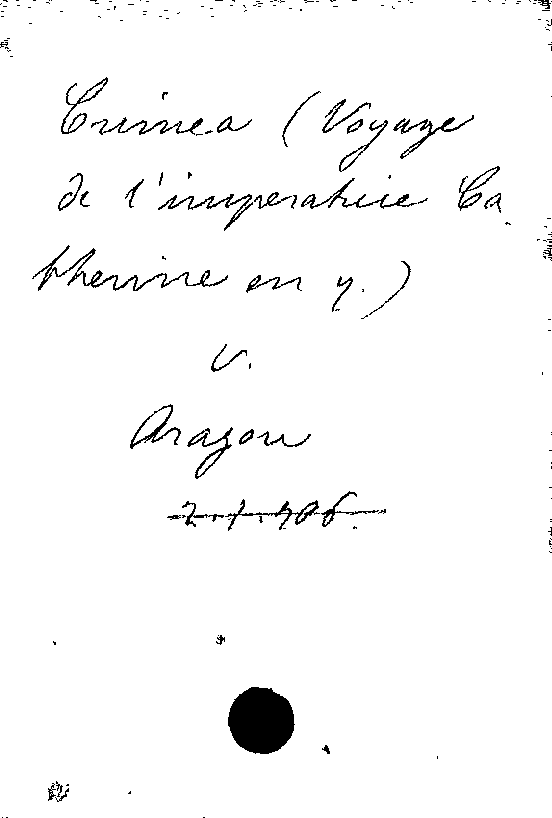 Crimea (Voyage
de l'imperatrice Ca
therine en y.)
v.
Aragon